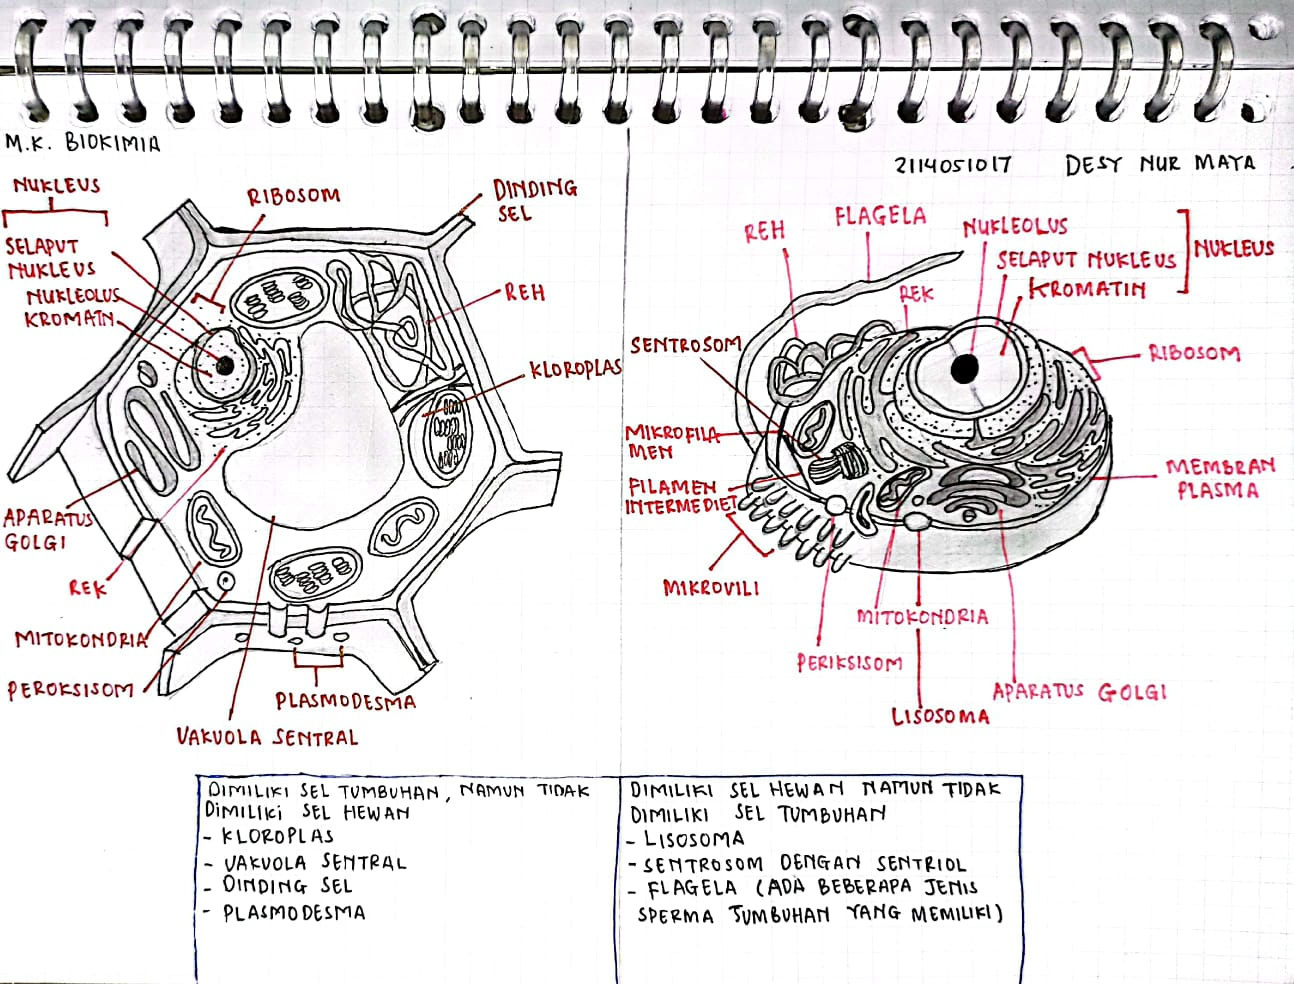 M.K. BIOKIMIA
2114051017 DESY NUR MAYA
NUKLEUS
RIBOSOM
DINDING
SEL
SELAPUT
NUKLEUS
NUKLEOLUS
KROMATN
REH
KLOROPLAS
APARATUS
GOLGI
REK
MITOKONDRIA
PEROKSISOM
PLASMODESMA
VAKUOLA SENTRAL
REH
FLAGELA
NUKLEOLUS
SELAPUT NUKLEUS
NUKLEUS
KROMATIN
REK
SENTROSOM
RIBOSOM
MIKROFILA
MEN
FILAMEN
INTERMEDIET
MEMBRAN
PLASMA
MIKROVILI
MITOKONDRIA
PERIKSISOM
APARATUS GOLGI
LISOSOMA
DIMILIKI SEL TUMBUHAN, NAMUN TIDAK
DIMILIKI SEL HEWAN
- KLOROPLAS
- VAKUOLA SENTRAL
- DINDING SEL
- PLASMODESMA
DIMILIKI SEL HEWAN NAMUN TIDAK
DIMILIKI SEL TUMBUHAN
- LISOSOMA
- SENTROSOM DENGAN SENTRIOL
- FLAGELA (ADA BEBERAPA JENIS
SPERMA TUMBUHAN YANG MEMILIKI)